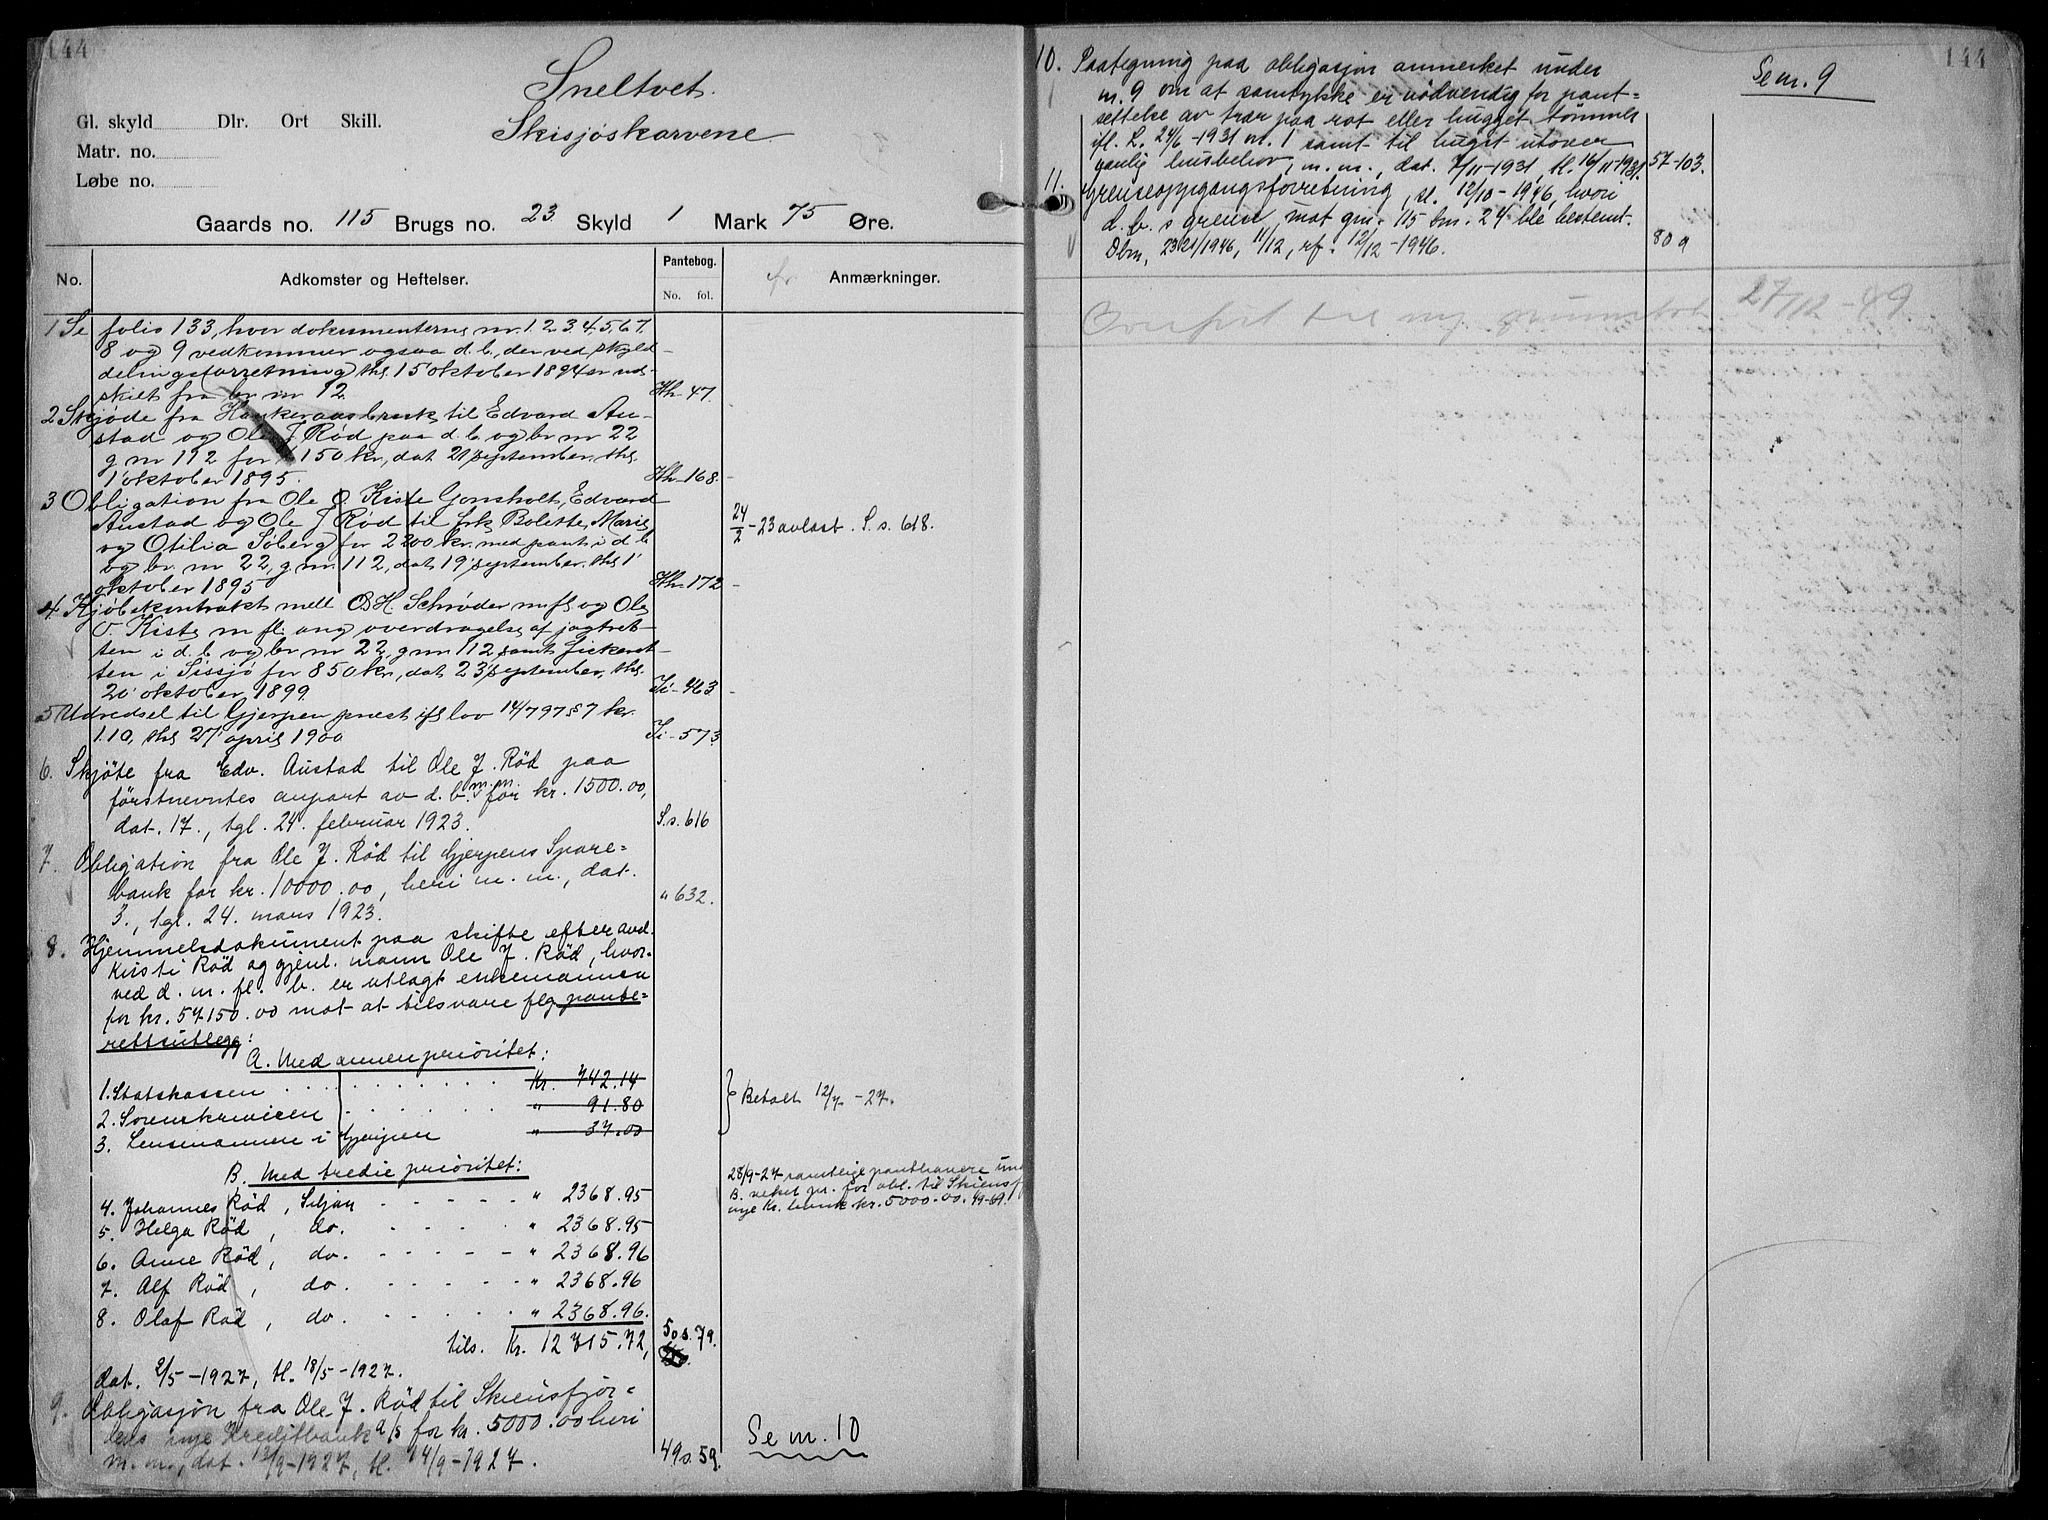 144
Sneltvet.
Skisjöskarvene
Gl. skyld Dlr. Ort Skill.
Matr. no.
Løbe no.
Gaards no. 115 Brugs no. 23 Skyld 1 Mark 75 Øre.
No. Adkomster og Heftelser. Pantebog. Anmærkninger.
No. fol.
1 Se folio 133, hvor dokumenterne nr. 1.2.3.4.5.6.7.
8 og 9 vedkommer ogsaa d. b., der ved skyld-
delingsforretning thg. 15 oktober 1894 er ud-
skilt fra br. nr 12. Hh-47.
2 Skjøde fra Haukeraasbruk til Edvard Au-
stad og Ole J Rød paa d. b. og br nr 22
g nr 112 for 1150 kr, dat 21 september, thg.
1 oktober 1895. Hh-168.
3 Obligation fra Ole O. Kiste Gonsholt, Edvard
Austad og Ole J Rød til frk Bolette, Marie
og Otilia Søberg for 2200 kr. med pant i d. b.
og br. nr 22, g nr. 112, dat. 19 september, thg 1
oktober 1895 Hh-172
24/2-23 avlast. S. s. 618.
4 Kjøbekontrakt mell H. Schrøder m fl og Ole
O. Kiste m fl. ang overdragelse af jagtret-
ten i d. b. og br nr 22, g nr 112 samt fiskeret-
ten i Sissjø for 850 kr, dat 23 september, thg.
20 oktober 1899. Ii-463
5 Udredsel til Gjerpen prest ifl lov 14/7 97 § 7 kr.
1.10, thg 27 april 1900 Ii-573
6. Skjöte fra Edv. Austad til Ole J. Röd paa
förstnevntes anpart av d. b. m. m. for kr. 1500.00,
dat. 17., tgl. 24. februar 1923. S. s. 616
7. Obligation fra Ole J. Röd til Gjerpens Spare=
bank for kr. 10000.00, heri m. m., dat.
3., tgl. 24. mars 1923. " 632.
8. Hjemmelsdokument paa skifte efter avd.
Kirsti Röd og gjenl. mann Ole J. Röd, hvor-
ved d. m. fl. b. er utlagt enkemannen
for kr. 57150.00 mot at tilsvare flg. pante=
rettsutlegg:
A. Med annen prioritet:
1. Statskassen Kr. 742.14
2. Sorenskriveren " 91.80
3. Lensmannen i Gjerpen " 37.00
Betalt 12/7-27.
B. Med tredie prioritet:
4. Johannes Röd, Siljan " 2368.95
5. Helga Röd, do. " 2368.95
6. Anne Röd, do. " 2368.96
7. Alf Röd, do. " 2368.96
8. Olaf Röd, do. " 2368.96.
tils. Kr. 12715.72, 50 s. 79.
dat. 2/5-1927, tl. 18/5-1927.
28/9-27 samtlige panthavere
B. veket pr. for obl. til Skiensfj
nye Kr. bank kr. 5000.00. 49-69.
9. Obligasjon fra Ole J. Röd til Skiensfjor=
dens nye Kreditbank a/s for kr. 5000.00 heri
m. m., dat. 12/9-1927, tl. 14/9-1927. 49 s. 59.
Se nr. 10
144
10. Paategning paa obligasjon anmerket under
nr. 9 om at samtykke er nödvendig for pant=
settelse av trær paa rot eller hugget tömmer
ifl. L. 24/6-1931 nr. 1 samt til hugst utover
vanlig husbehov, m. m., dat. 7/11-1931, tl. 16/11-1931. 57-103.
Se nr. 9
11. Grenseoppgangsforretning, sl. 12/10-1946, hvori
d. b. s grense mot gnr. 115 bnr. 24 ble bestemt.
Dbnr. 2321/1946, 11/12, rf. 12/12-1946. 80 a
Overfört til ny grunnbok 27/12-89